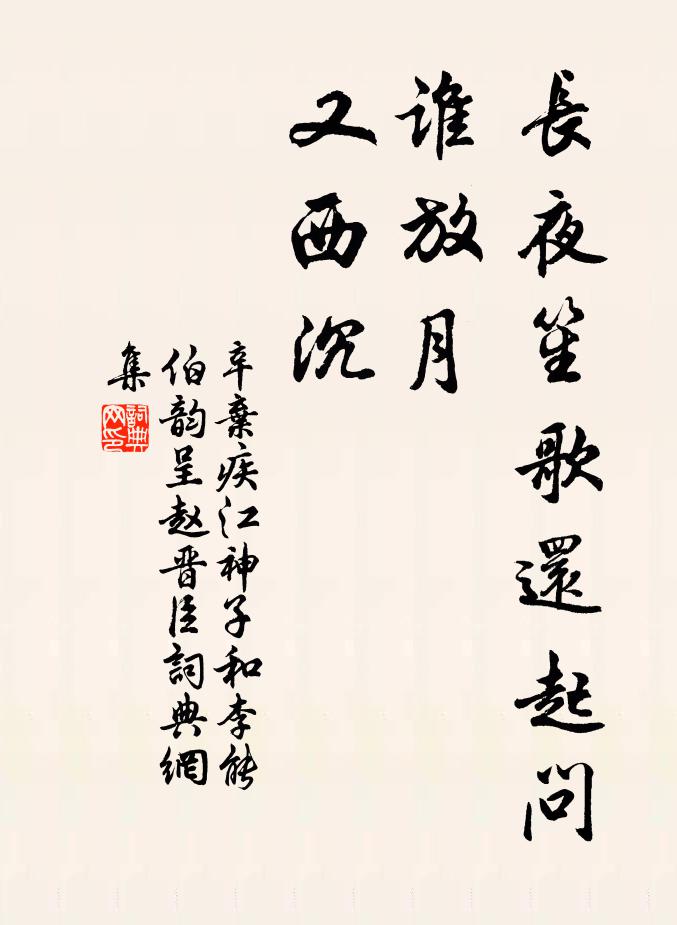 長夜笙歌還起問
誰放月
又西沉
辛棄疾江神子和李能
伯韵呈赵晋臣詞典網
集
詞典
网印